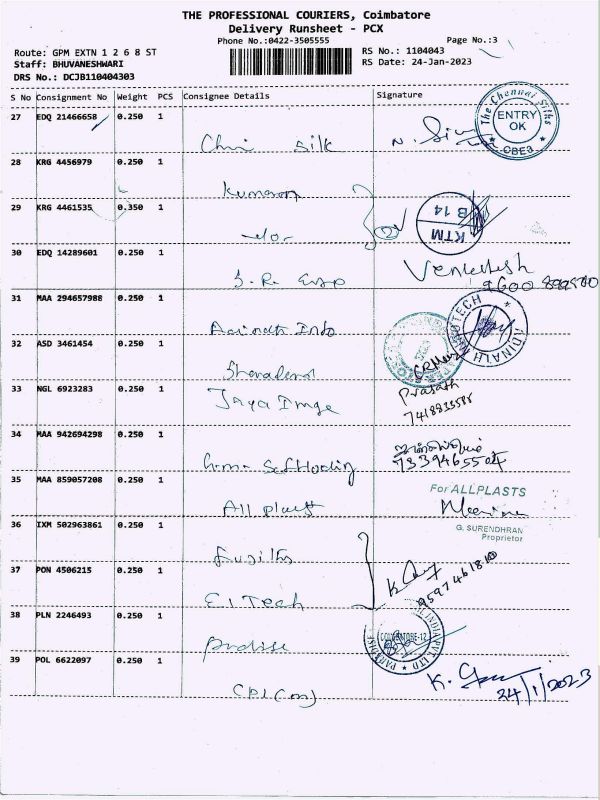 THE PROFESSIONAL COURIERS, Coimbatore
Delivery Runsheet - PCX
Phone No.:0422-3505555
Page No.:3
Route: GPM EXTN 1 2 6 8 ST
RS No.: 1104043
Staff: BHUVANESHWARI
RS Date: 24-Jan-2023
DRS No.: DCJB110404303
S No Consignment No Weight PCS Consignee Details Signature
27 EDQ 21466658 0.250 1 silk
The Chennai Silks ENTRY OK CBE3
28 KRG 4456979 0.250 1 Kumaran
29 KRG 4461535 0.350 1
KTM B 14
30 EDQ 14289601 0.250 1 S. R. Exp Venkatesh
31 MAA 294657988 0.250 1
ADINATH INFOTECH
32 ASD 3461454 0.250 1
33 NGL 6923283 0.250 1 Jaya Image Prasath
34 MAA 942694298 0.250 1
35 MAA 859057208 0.250 1 All plast
For ALLPLASTS
G. SURENDHRAN
Proprietor
36 IXM 502963861 0.250 1
37 PON 4506215 0.250 1 E.I Tech
38 PLN 2246493 0.250 1
COIMBATORE-12
39 POL 6622097 0.250 1 K.
24/1/2023